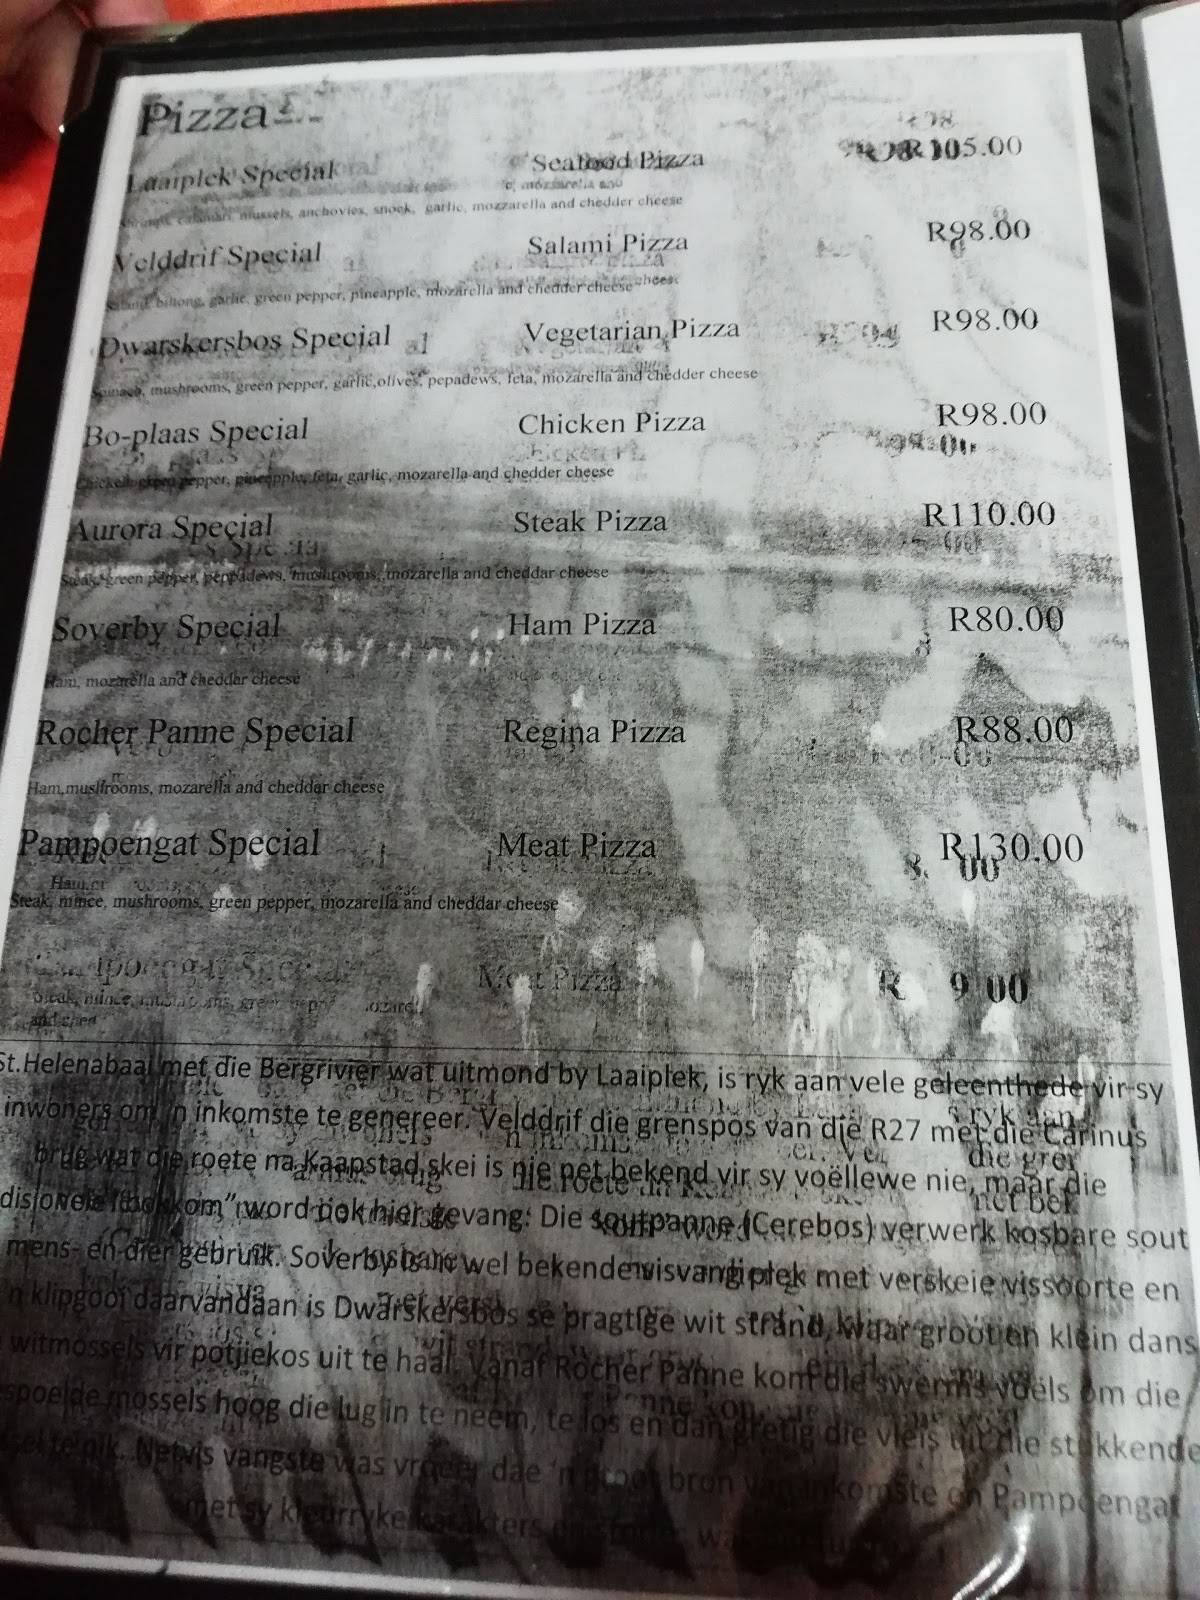 Pizza
Laaiplek Special Seafood Pizza R105.00
Shrimps, calamari, mussels, anchovies, snoek, garlic, mozzarella and chedder cheese
Velddrif Special Salami Pizza R98.00
Salami, biltong, garlic, green pepper, pineapple, mozarella and chedder cheese
Dwarskersbos Special Vegetarian Pizza R98.00
Spinach, mushrooms, green pepper, garlic,olives, pepadews, feta, mozarella and chedder cheese
Bo-plaas Special Chicken Pizza R98.00
Chicken, green pepper, pineapple, feta, garlic, mozarella and chedder cheese
Aurora Special Steak Pizza R110.00
Steak, green pepper, peppadews, mushrooms, mozarella and cheddar cheese
Soverby Special Ham Pizza R80.00
Ham, mozarella and cheddar cheese
Rocher Panne Special Regina Pizza R88.00
Ham,mushrooms, mozarella and cheddar cheese
Pampoengat Special Meat Pizza R130.00
Steak, mince, mushrooms, green pepper, mozarella and cheddar cheese
Meat Pizza
St.Helenabaai met die Bergrivier wat uitmond by Laaiplek, is ryk aan vele geleenthede vir sy
inwoners om 'n inkomste te genereer. Velddrif die grenspos van die R27 met die Carinus
brug wat die roete na Kaapstad skei is nie net bekend vir sy voëllewe nie, maar die
disionele "bokkom" word ook hier gevang. Die soutpanne (Cerebos) verwerk kosbare sout
mens- en dier gebruik. Soverby is 'n wel bekende visvangplek met verskeie vissoorte en
'n klipgooi daarvandaan is Dwarskersbos se pragtige wit strand, waar groot en klein dans
witmossels vir potjiekos uit te haal. Vanaf Rocher Panne kom die swerms voëls om die
spoelde mossels hoog die lug in te neem, te los en dan gretig die vleis uit die stukkende
te pik. Netvis vangste was vroeër dae 'n groot bron van inkomste en Pampoengat
met sy kleurryke karakters